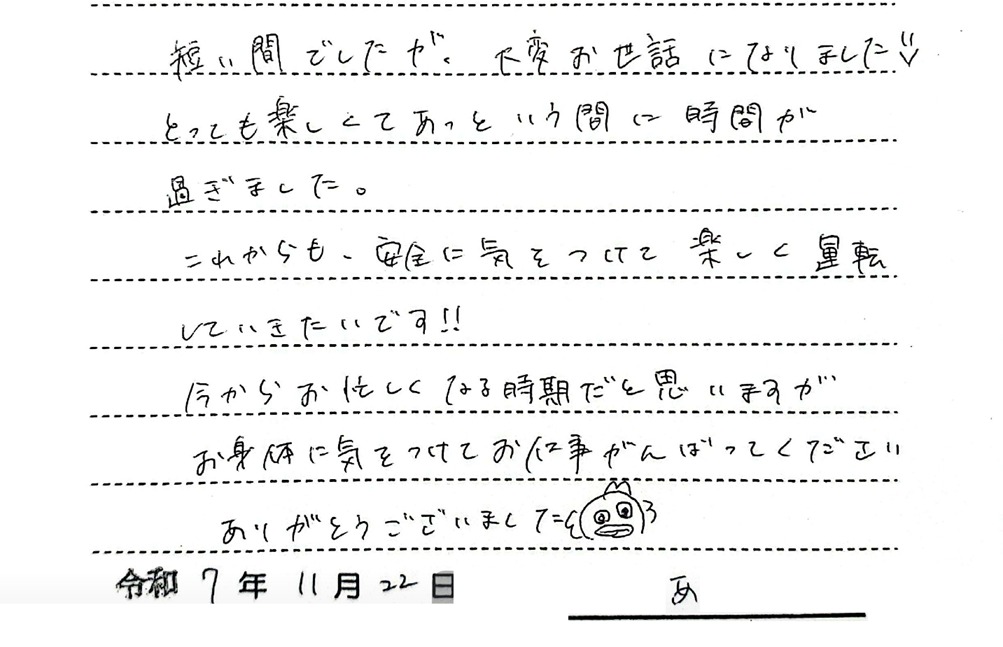 短い間でしたが、大変お世話になりました
とっても楽しくてあっという間に時間が
過ぎました。
これからも、安全に気をつけて楽しく運転
していきたいです!!
今からお忙しくなる時期だと思いますが
お身体に気をつけてお仕事がんばってください
ありがとうございました
令和 7 年 11 月 22 日
あ